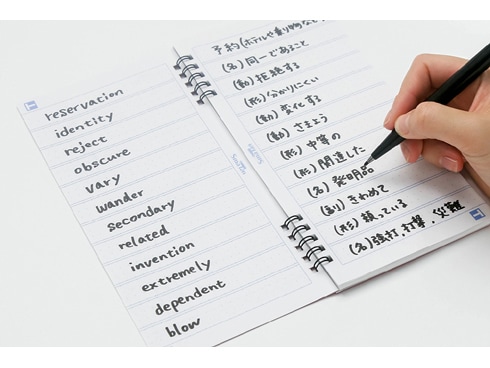 reservation
identity
reject
obscure
vary
wander
secondary
related
invention
extremely
dependent
blow
予約(ホテルや乗り物など
(名) 同一であること
(動) 拒絶する
(形) 分かりにくい
(動) 変化する
(動) さまよう
(形) 中等の
(形) 関連した
(名) 発明品
(副) きわめて
(形) 頼っている
(名) 強打、打撃、災難